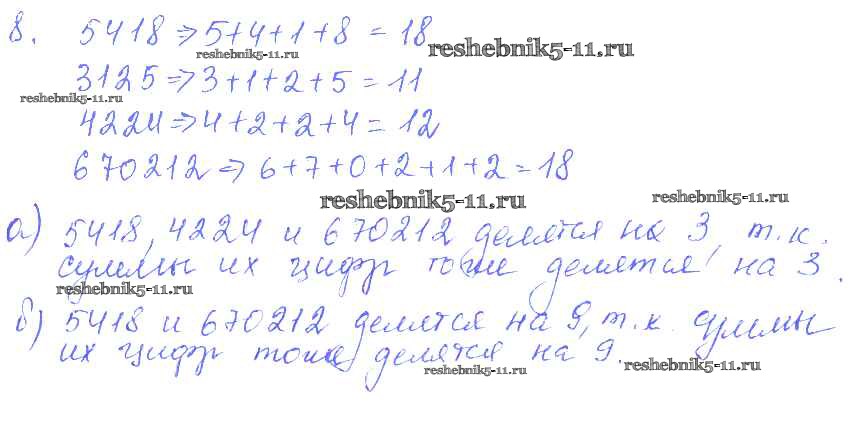 8. 5418 => 5+4+1+8 = 18
reshebnik5-11.ru
reshebnik5-11.ru
3125 => 3+1+2+5 = 11
reshebnik5-11.ru
4224 => 4+2+2+4 = 12
670212 => 6+7+0+2+1+2 = 18
reshebnik5-11.ru
reshebnik5-11.ru
а) 5418, 4224 и 670212 делятся на 3, т.к.
суммы их цифр тоже делятся на 3.
reshebnik5-11.ru
б) 5418 и 670212 делятся на 9, т.к. суммы
их цифр тоже делятся на 9.
reshebnik5-11.ru
reshebnik5-11.ru